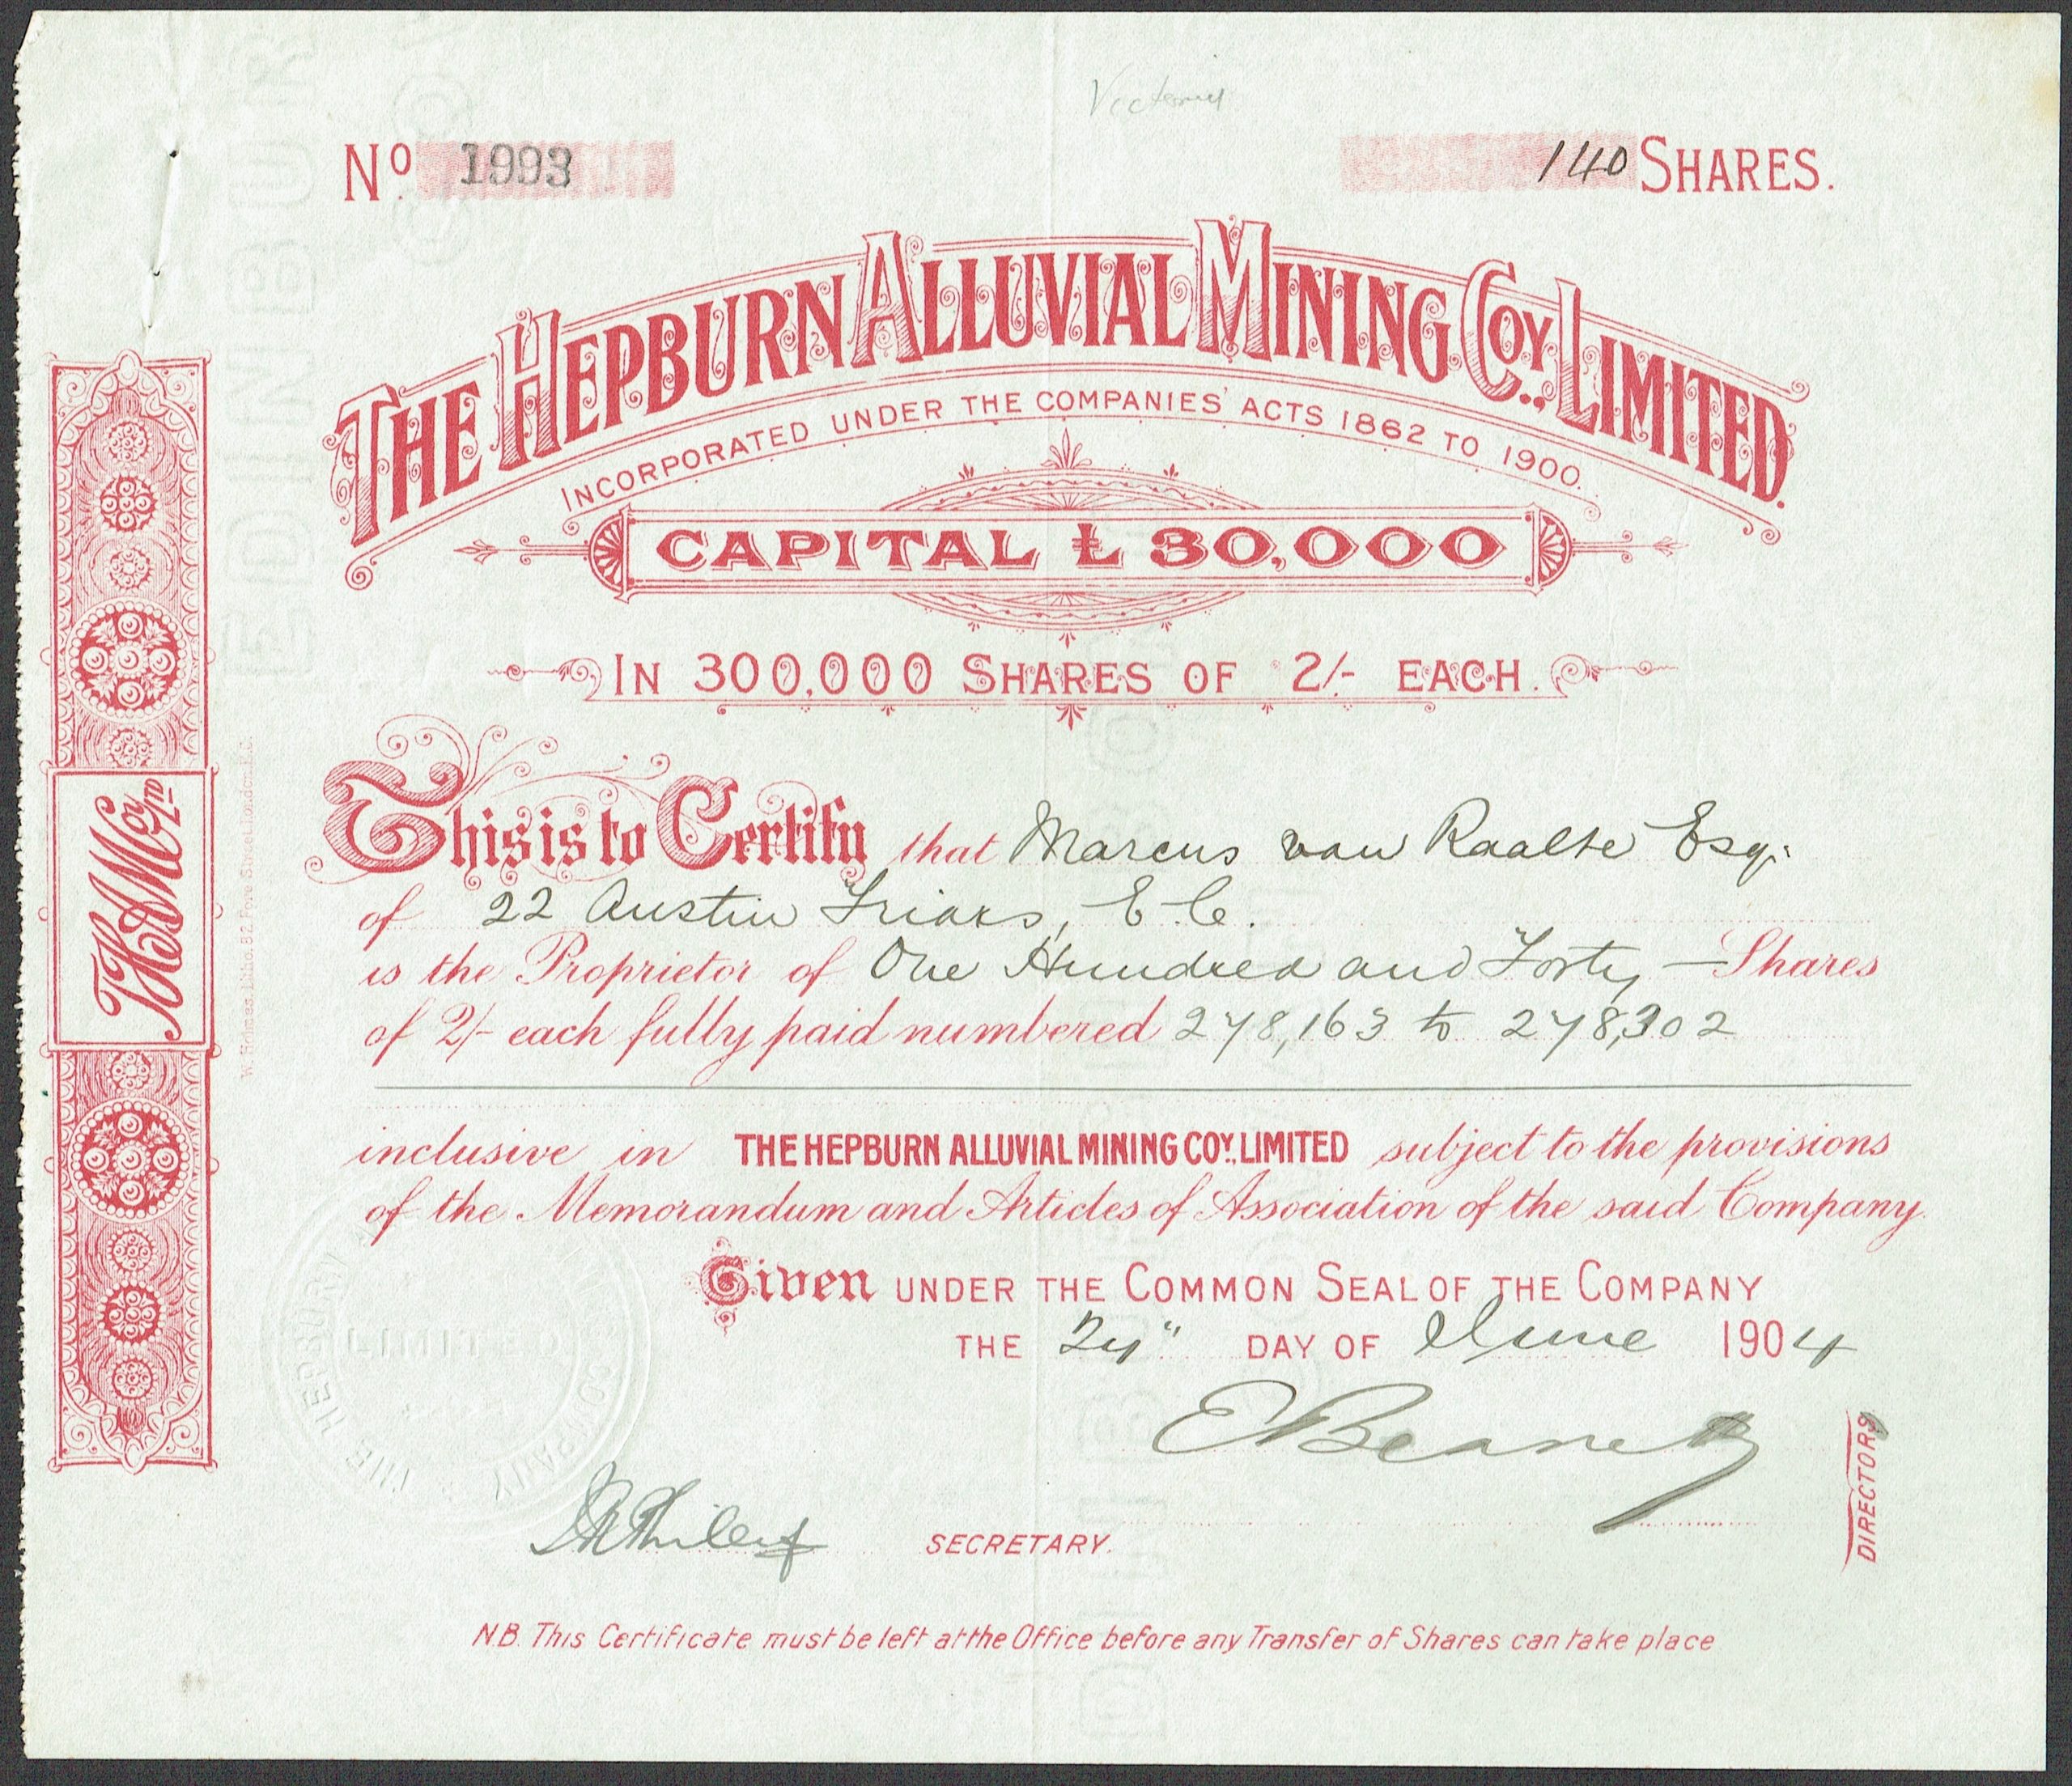 Victoria
No. 1993
140 SHARES.
THE HEPBURN ALLUVIAL MINING COY., LIMITED.
INCORPORATED UNDER THE COMPANIES' ACTS 1862 TO 1900.
CAPITAL £30,000
IN 300,000 SHARES OF 2/- EACH.
This is to Certify that Marcus van Raalte Esq:
of 22 Austin Friars, E.C.
is the Proprietor of One Hundred and Forty — Shares
of 2/- each fully paid numbered 278,163 to 278,302
inclusive in THE HEPBURN ALLUVIAL MINING COY., LIMITED subject to the provisions
of the Memorandum and Articles of Association of the said Company.
Given UNDER THE COMMON SEAL OF THE COMPANY
THE DAY OF June 1904
DIRECTORS
SECRETARY.
N.B. This Certificate must be left at the Office before any Transfer of Shares can take place
THE HEPBURN
COMPANY
LIMITED
W. Holmes, Litho, 82, Fore Street London E.C.
EDINBUR